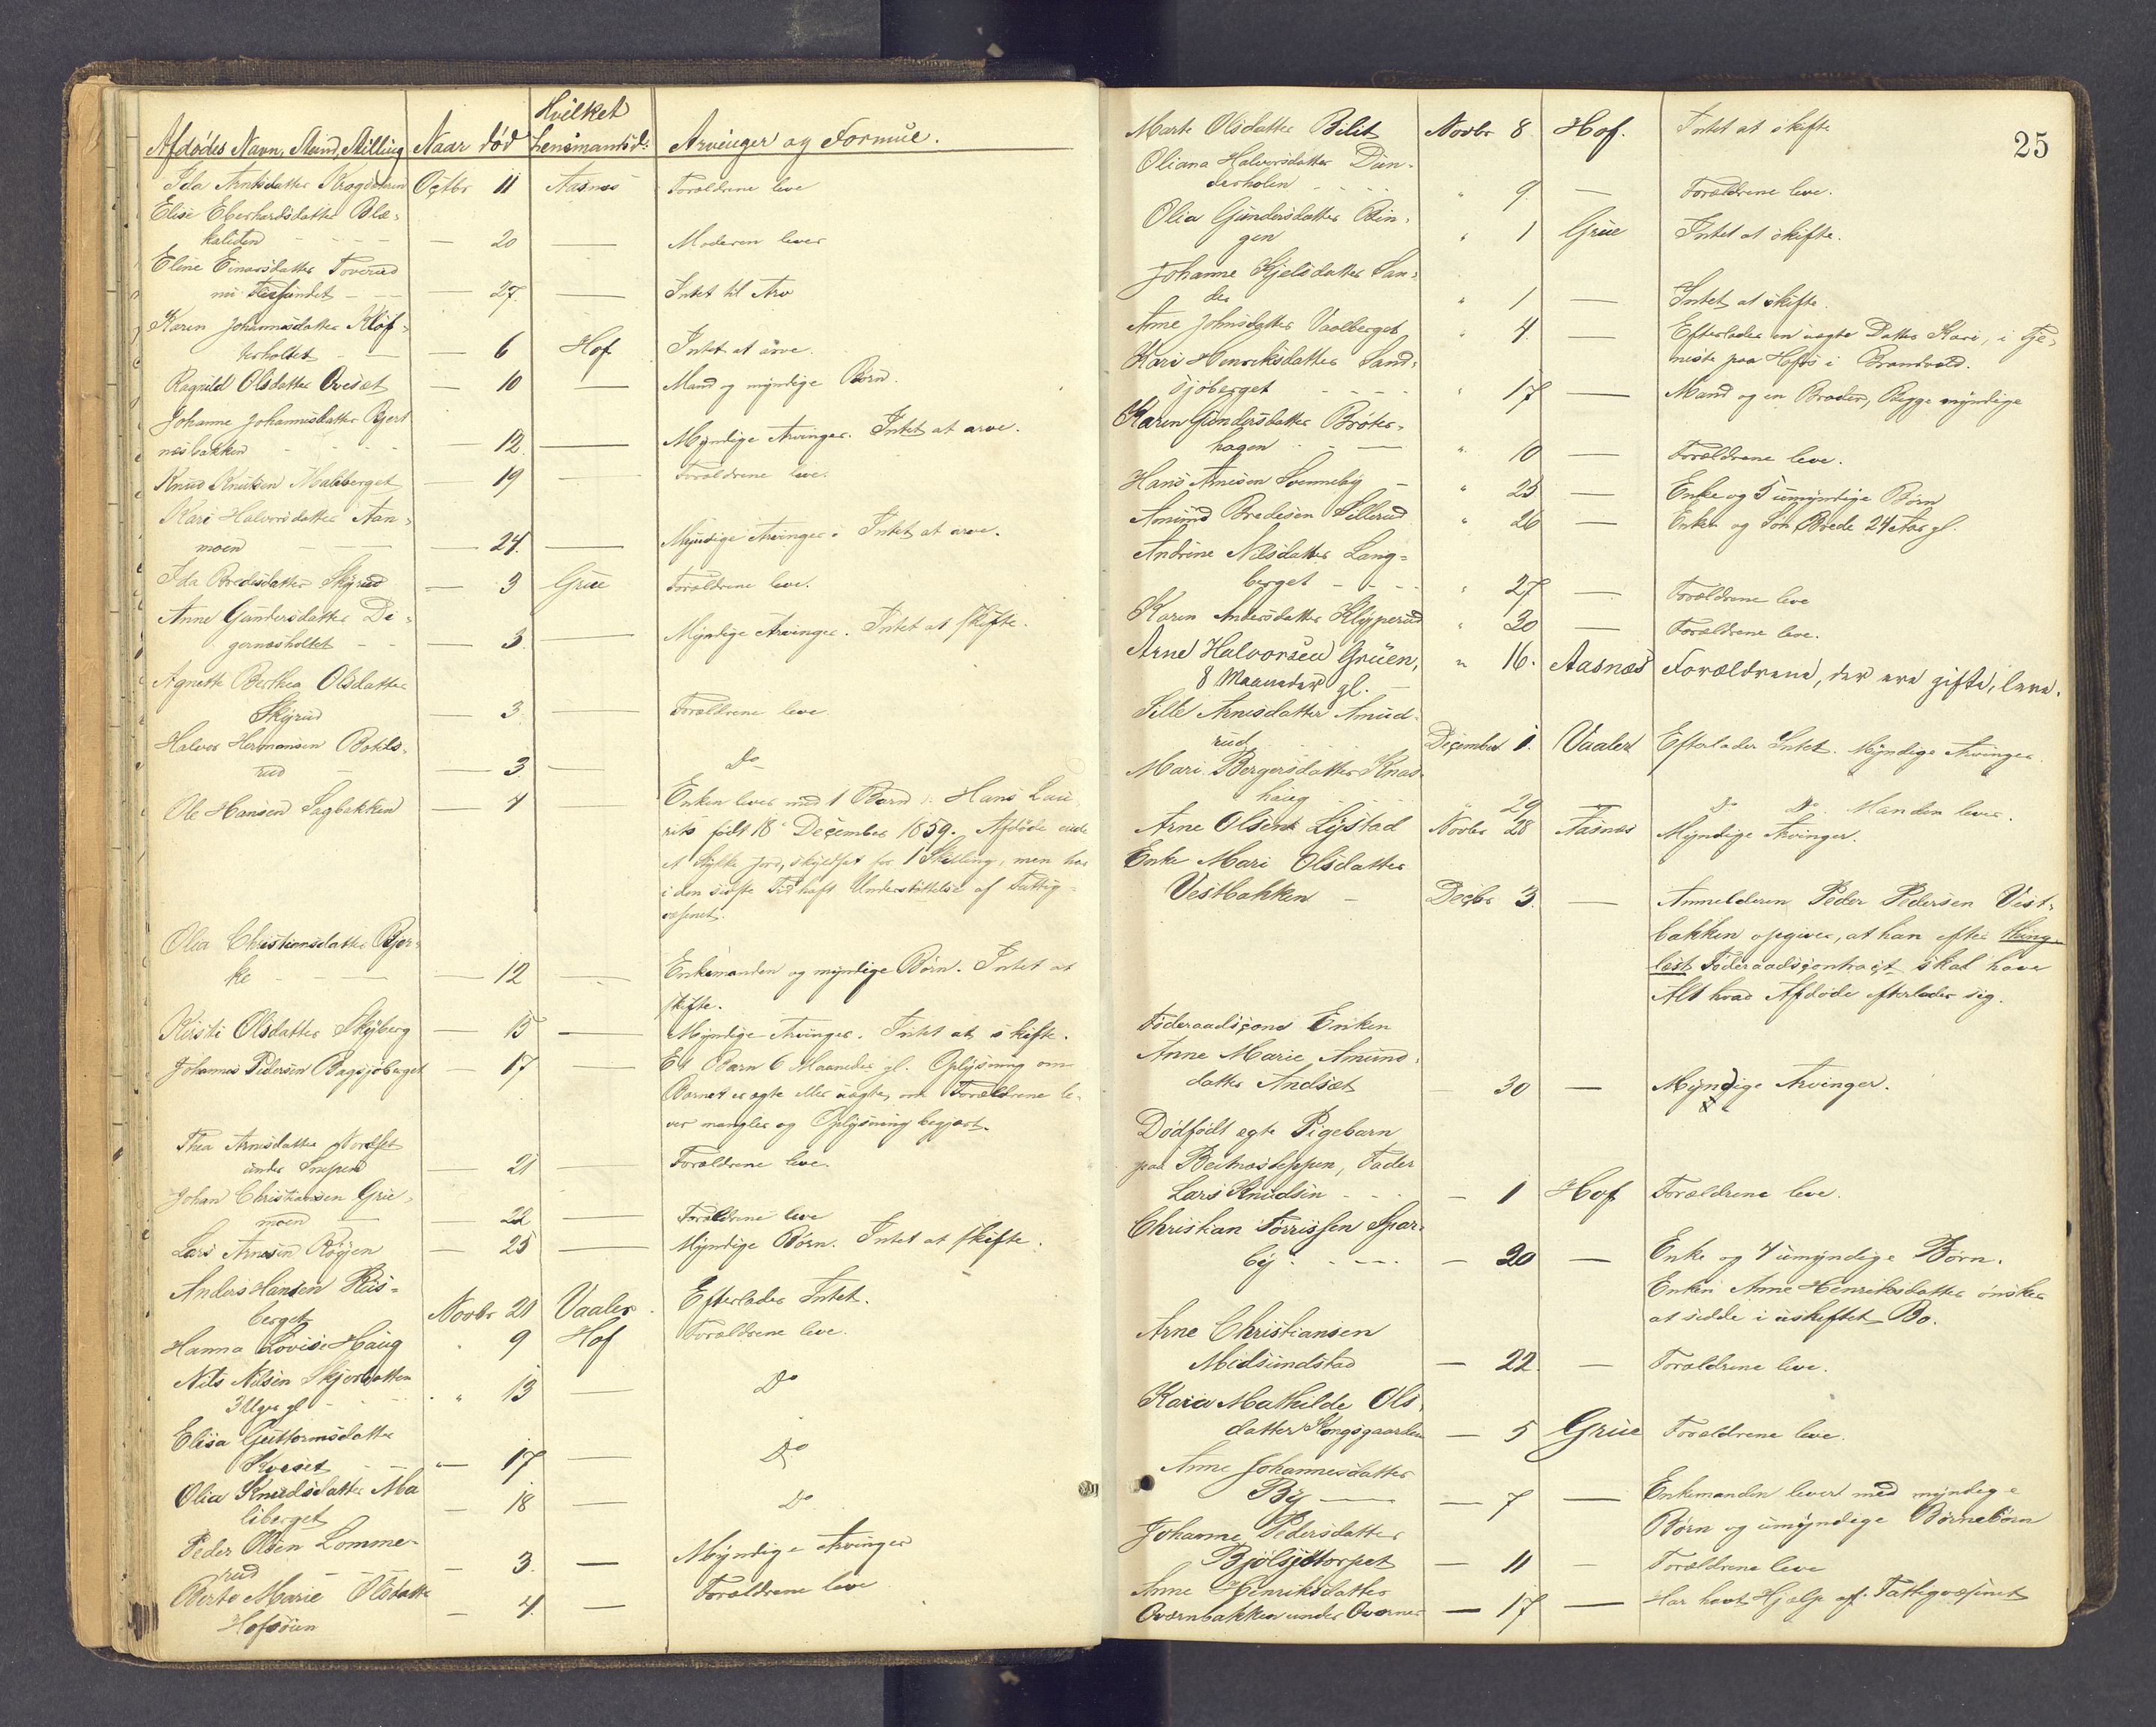 Hvilket
Afdødes Navn, Mand, Stilling Naar død Lensmandsd: Arvinger og Formue.
Ida Arntsdatter Octbr 11 Aasnæs Forældrene leve
Elise Eberhardsdatter Blæ-
kaliden - - - — 20 — Moderen lever
Eline Einarsdatter Toverud
— 27 — Intet til Arv
Karen Johannesdatter Kløf-
terholtet — — 6 Hof Intet at arve.
Ragnild Olsdatter Overset — 10 — Mand og myndige Børn.
Johanne Johannesdatter Bjert
næsbakken - - - 12. — Myndige Arvinger. Intet at arve.
Knud Knutsen Malsberget — 19 — Forældrene leve.
Kari Halvorsdatter Aan-
moen — — 24. — Myndige Arvinger. Intet at arve.
Ida Bredesdatter Skyrud — 3 Grue Forældrene leve.
Anne Gundersdatter Di-
gernæsholtet - - — 3. — Myndige Arvinger. Intet at skifte.
Agnethe Berthea Olsdatter
Skyrud — 3. — Forældrene leve
Halvor Hermansen Bohls-
rud — — 3 — Do
Ole Hansen Sagbakken — 4 — Enken lever med 1 Barn: Hans Lau
rits født 18 December 1859. Afdøde eiede
et Stykke Jord, skyldsat for 1 Skilling, men har
i den sidste Tid haft Understøttelse af Fattig-
væsenet.
Olea Christiansdatter Bjer-
ke — — 12 — Enkemanden og myndige Børn. Intet at
skifte.
Kirsti Olsdatter Skyberg — 15 — Myndige Arvinger. Intet at skifte.
Johannes Pedersen Bagsjøberget — 17 — Et Barn 6 Maaneder gl. Oplysning om
Barnet er ægte eller uægte, om Forældrene le-
ver mangler og Oplysning begjært.
Thea Arnesdatter Nordset
under — 21 — Forældrene leve.
Johan Christiansen Grue-
moen — — 22 — Forældrene leve
Lars Arnesen Røgen — 25 — Myndige Børn. Intet at skifte.
Anders Hansen Riis-
berget Novbr 21 Vaaler. Efterlader Intet.
Hanna Lovise Haug " 9 Hof Forældrene leve.
Nils Nilsen Skjerbatten
3 Uger gl - - " 13 — Do
Elisa Guttormsdatter
Kveset - - — 17 — Do
Olia Knudsdatter Ma
liberget — 18 — Do
Peder Olsen Lomme-
rud — — 3. — Myndige Arvinger
Berte Marie Olsdatter
Hofsøien — 4. — Forældrene leve
25
Marte Olsdatter Bilit Novbr 8 Hof. Intet at skifte
Oliana Halvorsdatter Dun-
derholen - - - " 9. — Forældrene leve.
Olia Gundersdatter Rin-
gen " 1 Grue Intet at skifte.
Johanne Kjelsdatter San-
der " 1 — Intet at skifte.
Anne Johnsdatter Vaalberget " 4. — Efterlader en uægte Datter Kari, i Tje-
neste paa Hofos i Brandvold.
Kari Henriksdatter Sand-
sjøberget - - - " 17 — Mand og en Broder, Begge myndige
Karen Gundersdatter Brøter-
hagen - - — " 10 — Forældrene leve.
Hans Arnesen Svenneby — " 25 — Enke og 5 umyndige Børn
Amund Bredesen Sillerud " 26 — Enken og Søn Brede 24 Aar gl.
Andrine Nilsdatter Lang-
berget - - - - " 27 — Forældrene leve
Karen Andersdatter Klypperud " 30 — Forældrene leve.
Arne Halvorsen Gruen, " 16. Aasnæs Forældrene, der ere gifte, leve.
8 Maaneder gl. —
Sille Arnesdatter Amud-
rud - - December 1. Vaaler Efterlader Intet. Myndige Arvinger.
Mari Bergersdatter Knas-
haug - - - " 29 — Do Do. Manden lever.
Arne Olsen Lystad Novbr 28 Aasnæs Myndige Arvinger.
Enke Mari Olsdatter
Vestbakken — Decbr 3. — Anmelderen Peder Pedersen Vest-
bakken opgiver, at han efter thing-
læst Føderaadscontract skal have
Alt hvad Afdøde efterlader sig.
Føderaadscone Enken
Anne Marie Amund-
datter Andsæt — 30 — Myndige Arvinger.
Dødfødt ægte Pigebarn
paa , Fader
Lars Knudsen - - - — 1 Hof Forældrene leve.
Christian Torrissen Spar-
by - - - - — 20 — Enke og 4 umyndige Børn.
Enken Anne Henriksdatter ønsker
at sidde i uskiftet Bo.
Arne Christiansen
Midsundstad — 22. — Forældrene leve.
Kaia Mathilde Ols-
datter Kongsgaarden — 5 Grue Forældrene leve.
Anne Johannesdatter
By — — 7 — Enkemanden lever med myndige
Børn og umyndige Børnebørn
Johanne Pedersdatter
Bjølsjøtorpet — 11 — Forældrene leve
Anne Henriksdatter
Qværnbakken under Qværner — 17 — Har havt Hjælp af Fattigvæsenet